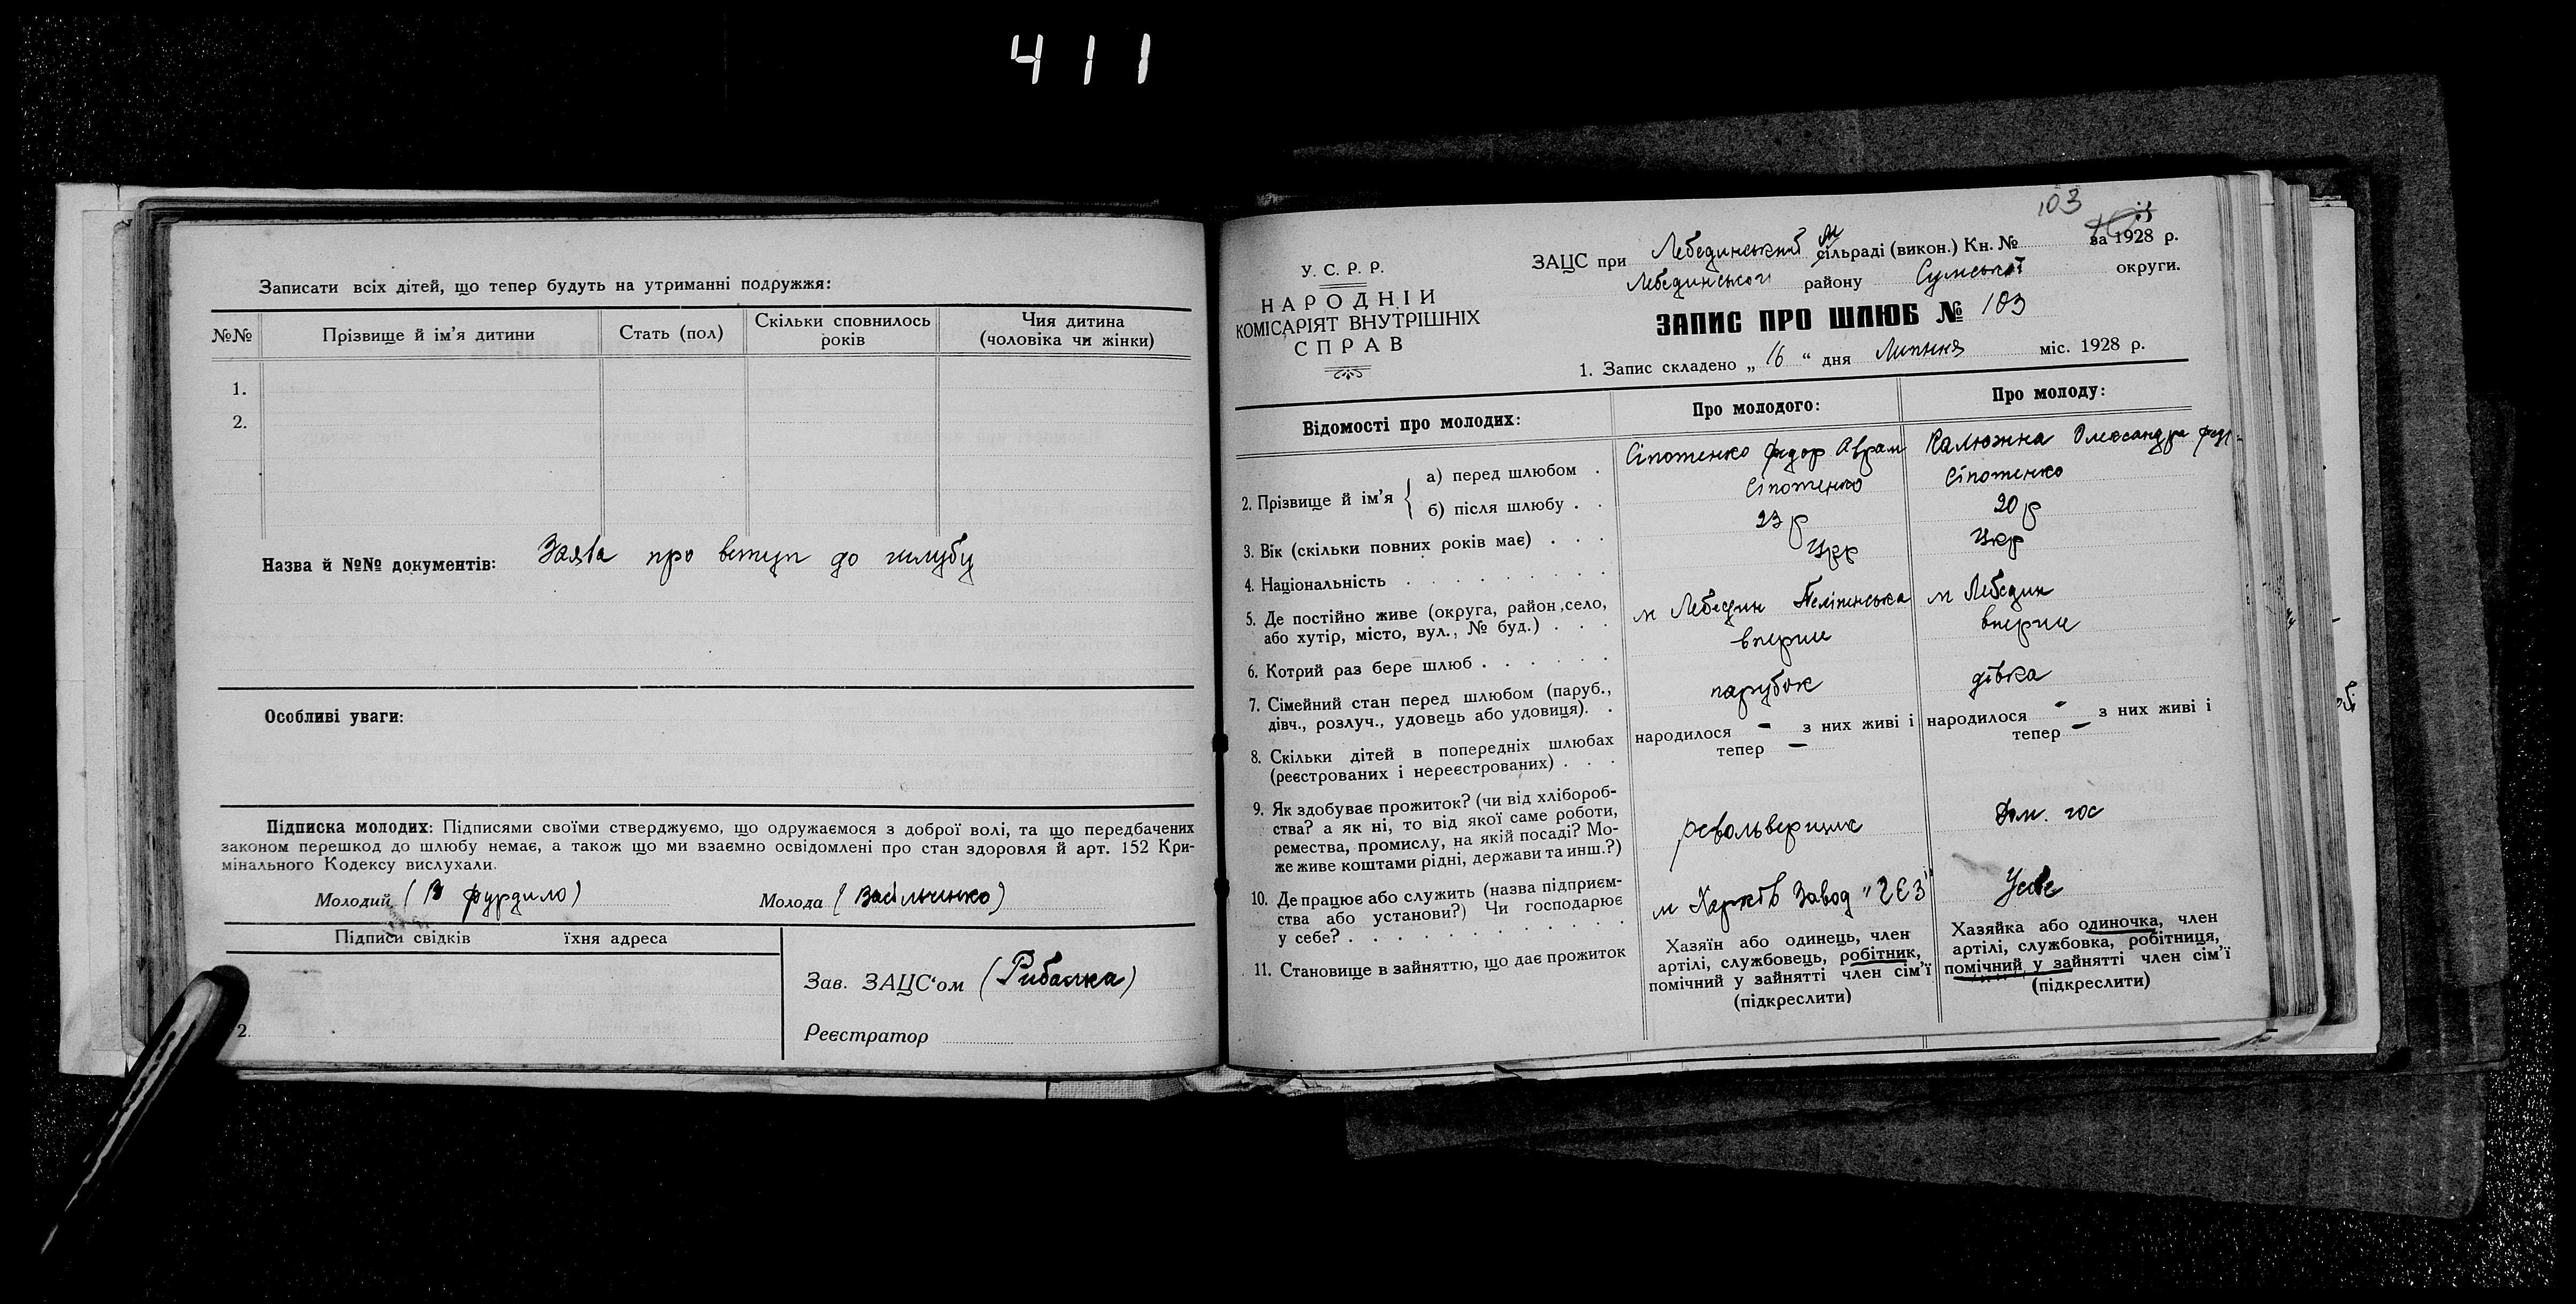 411
Записати всіх дітей, що тепер будуть на утриманні подружжя:
№№ Прізвище й ім'я дитини Стать (пол) Скільки сповнилось років Чия дитина (чоловіка чи жінки)
1.
2.
Назва й №№ документів: Заява про вступ до шлубу
Особливі уваги:
Підписка молодих: Підписями своїми стверджуємо, що одружаємося з доброї волі, та що передбачених
законом перешкод до шлюбу немає, а також що ми взаємно освідомлені про стан здоровля й арт. 152 Кри-
мінального Кодексу вислухали.
Молодий (В Фурдило) Молода (Васільченко)
Підписи свідків їхня адреса
Зав. ЗАЦС'ом (Рибалка)
2.
Реєстратор
103
У. С. Р. Р.
НАРОДНІЙ
КОМІСАРІЯТ ВНУТРІШНІХ
СПРАВ
ЗАЦС при Лебединській м сільраді (викон.) Кн. № за 1928 р.
Лебединського району Сумської округи.
ЗАПИС ПРО ШЛЮБ № 103
1. Запис складено „ 16 “ дня Липня міс. 1928 р.
Відомості про молодих: Про молодого: Про молоду:
2. Прізвище й ім'я { а) перед шлюбом . Сіпотенко Федор Аврам Калюжна Олександра Фед.
б) після шлюбу . . Сіпотенко Сіпотенко
3. Вік (скільки повних років має) . . . 23 р 20 р
4. Національність . . . . . . . . . . Укр Укр
5. Де постійно живе (округа, район, село,
або хутір, місто, вул., № буд.) . . . м Лебедин м Лебедин
6. Котрий раз бере шлюб . . . . . . вперше вперше
7. Сімейний стан перед шлюбом (паруб.,
дівч., розлуч., удовець або удовиця). . парубок дівка
8. Скільки дітей в попередніх шлюбах
(реєстрованих і нереєстрованих) . . .
народилося – з них живі і
тепер –
народилося – з них живі і
тепер –
9. Як здобуває прожиток? (чи від хлібороб-
ства? а як ні, то від якої саме роботи,
ремества, промислу, на якій посаді? Мо-
же живе коштами рідні, держави та инш.?)
револьверщик Дом. гос
10. Де працює або служить (назва підприєм-
ства або установи?) Чи господарює
у себе? . . . . . . . . . . . .
м Харків Завод "ХЕЗ"
11. Становище в зайняттю, що дає прожиток
Хазяїн або одинець, член
артілі, службовець, робітник,
помічний у зайнятті член сім'ї
(підкреслити)
Хазяйка або одиночка, член
артілі, службовка, робітниця,
помічний у зайнятті член сім'ї
(підкреслити)